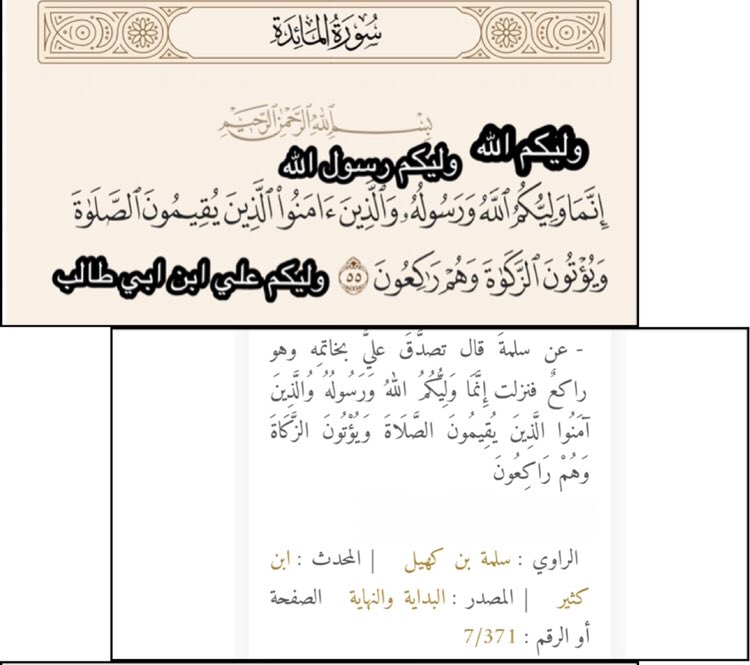 سُورَةُ المَائِدَةِ
بِسْمِ اللَّهِ الرَّحْمَٰنِ الرَّحِيمِ
وليكم الله
وليكم رسول الله
إِنَّمَا وَلِيُّكُمُ ٱللَّهُ وَرَسُولُهُۥ وَٱلَّذِينَ ءَامَنُوا۟ ٱلَّذِينَ يُقِيمُونَ ٱلصَّلَوٰةَ
وَيُؤْتُونَ ٱلزَّكَوٰةَ وَهُمْ رَٰكِعُونَ ٥٥ وليكم علي ابن ابي طالب
- عن سلمةَ قال تصدَّقَ عليٌّ بخاتمِه وهو
راكعٌ فنزلت إِنَّمَا وَلِيُّكُمُ اللهُ وَرَسُولُهُ وُالَّذِينَ
آمَنُوا الَّذِينَ يُقِيمُونَ الصَّلَاةَ وَيُؤْتُونَ الزَّكَاةَ
وَهُمْ رَاكِعُونَ
الراوي : سلمة بن كهيل | المحدث : ابن
كثير | المصدر : البداية والنهاية الصفحة
أو الرقم : 7/371